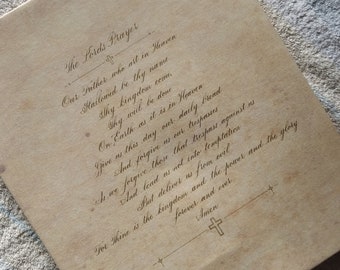 The Lords Prayer
Our Father who art in Heaven
Hallowed be thy name
Thy kingdom come,
Thy will be done
On Earth as it is in Heaven
Give us this day our daily bread
And forgive us our trespasses
As we forgive those that trespass against us
And lead us not into temptation
But deliver us from evil
For thine is the kingdom and the power and the glory
forever and ever
Amen